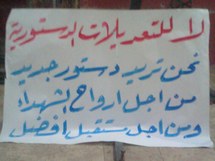 لا للتعديلات الدستورية
نحن نريد دستور جديد
من اجل ارواح الشهداء
ومن اجل مستقبل افضل